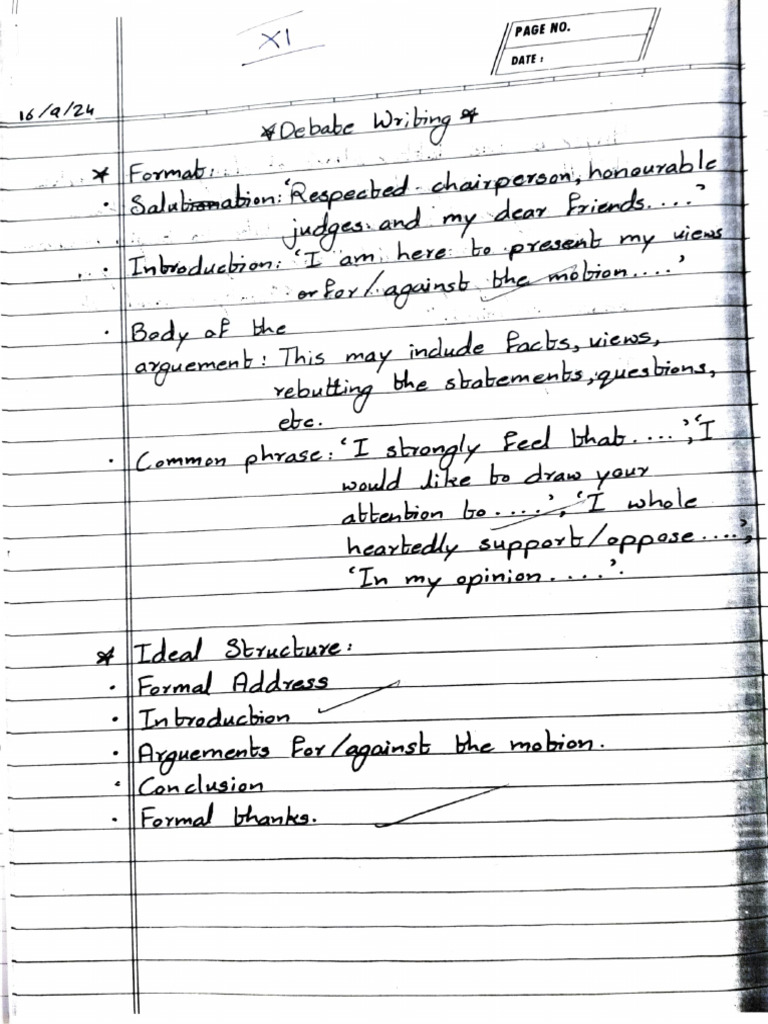 XI
PAGE NO.
DATE :
16/9/24
* Debate Writing *
* Format:
· Salutation: 'Respected chairperson, honourable
judges and my dear friends....'
· Introduction: 'I am here to present my views
for/against the motion....'
· Body of the
arguement: This may include facts, views,
rebutting the statements, questions,
etc.
· Common phrase: 'I strongly feel that....', 'I
would like to draw your
attention to....', 'I whole
heartedly support/oppose....',
'In my opinion....'.
* Ideal Structure:
· Formal Address
· Introduction
· Arguements for/against the motion.
· Conclusion
· Formal thanks.